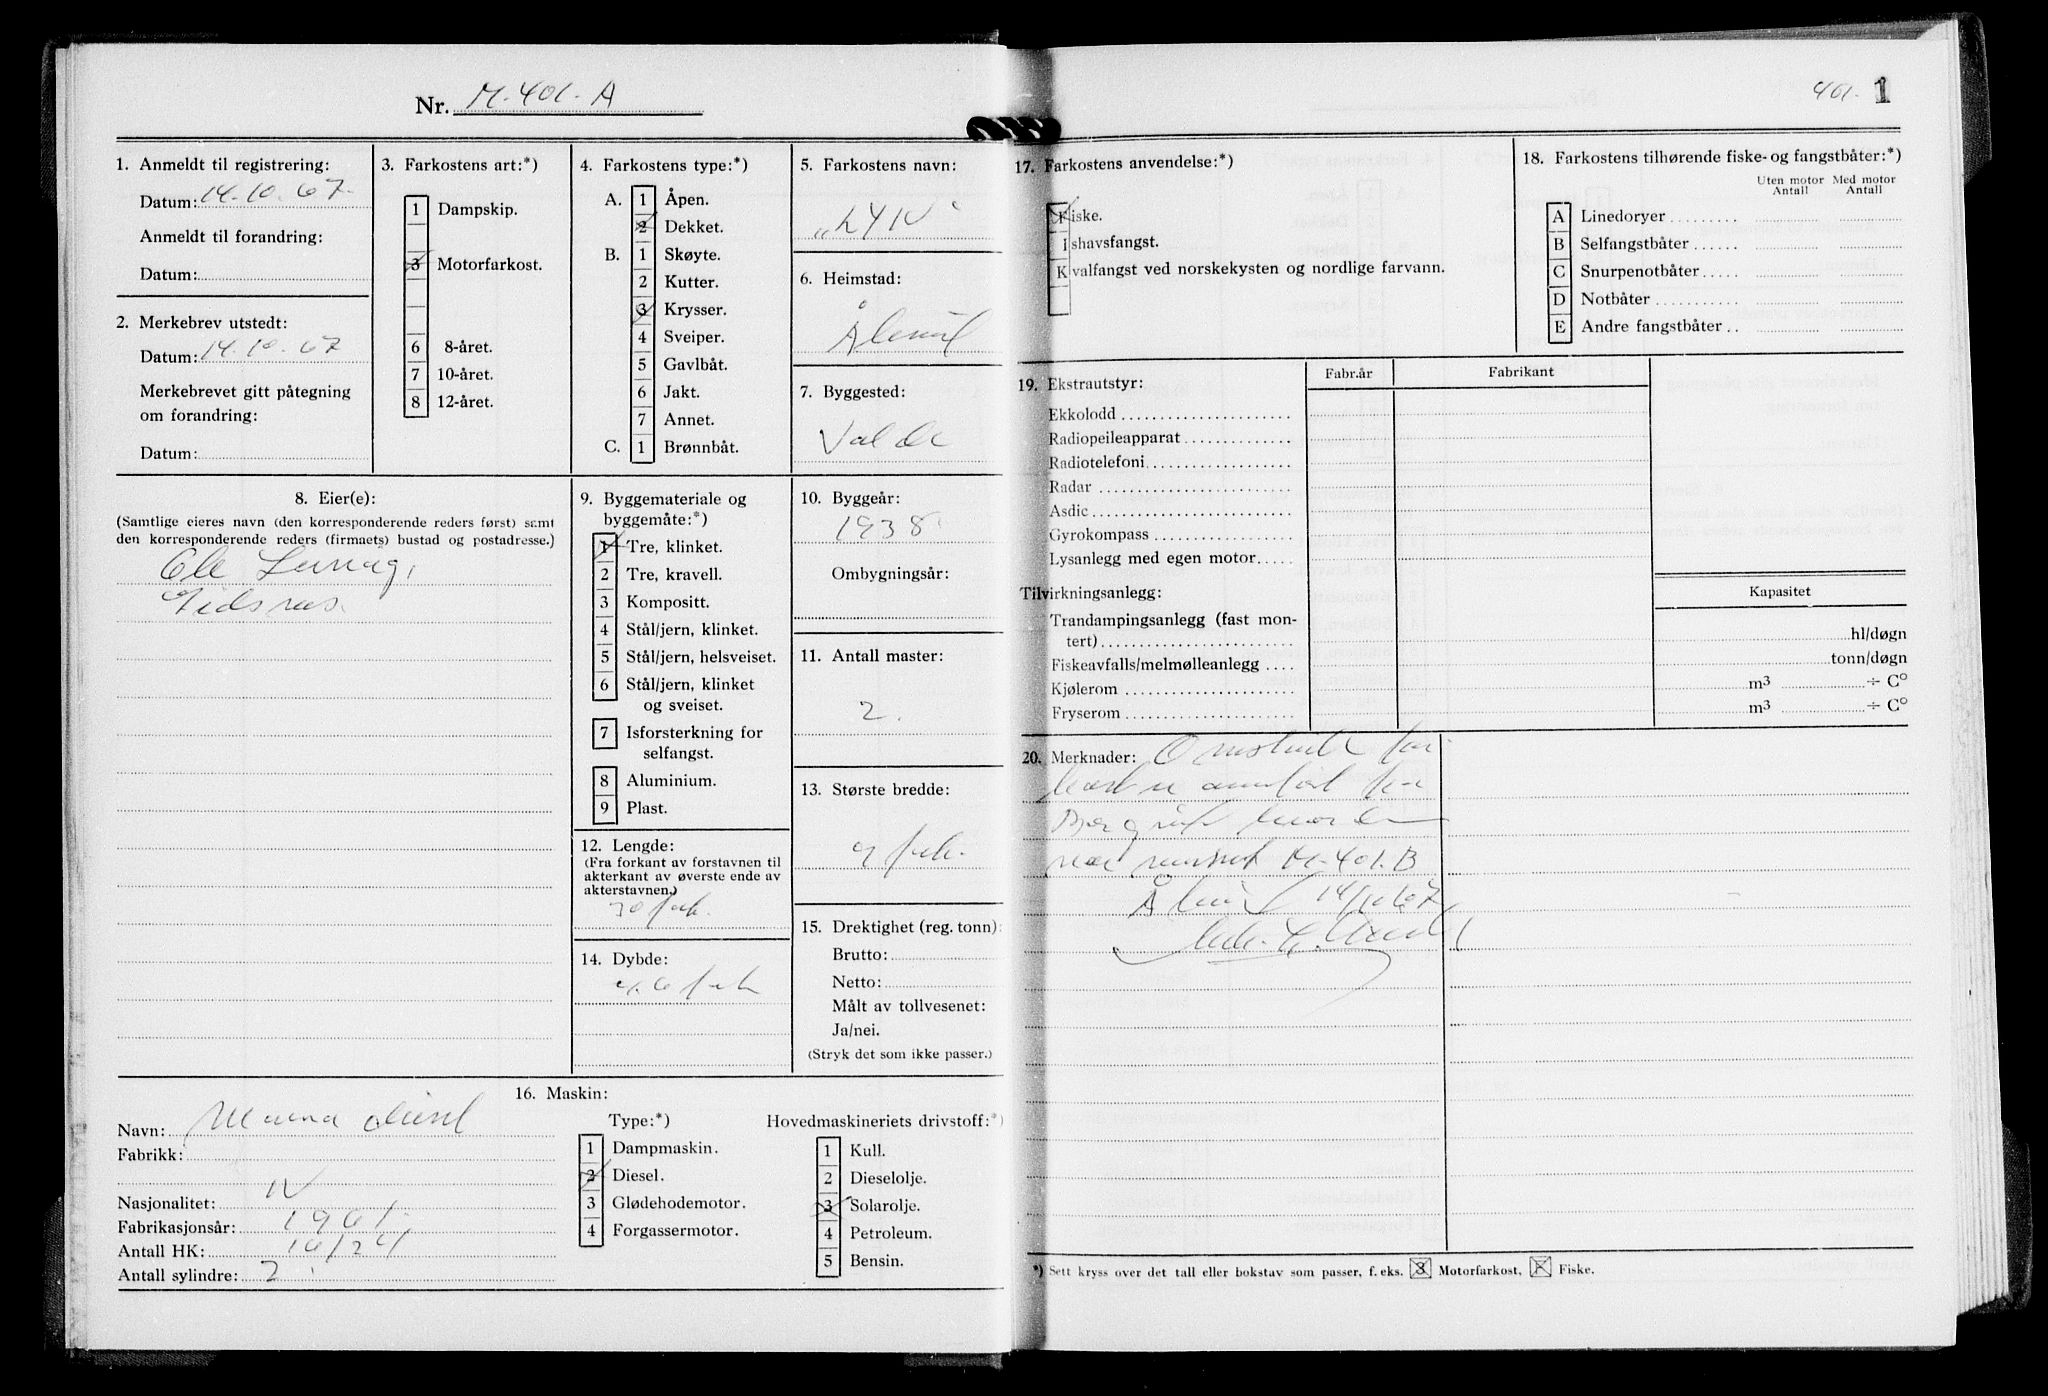 Nr. M-401-A
401. 1
1. Anmeldt til registrering:
Datum: 14.10.67
Anmeldt til forandring:
Datum:
2. Merkebrev utstedt:
Datum: 14.10.67
Merkebrevet gitt påtegning
om forandring:
Datum:
3. Farkostens art:*)
1 Dampskip.
3 Motorfarkost.
6 8-året.
7 10-året.
8 12-året.
4. Farkostens type:*)
A. 1 Åpen.
2 Dekket.
B. 1 Skøyte.
2 Kutter.
3 Krysser.
4 Sveiper.
5 Gavlbåt.
6 Jakt.
7 Annet.
C. 1 Brønnbåt.
5. Farkostens navn:
6. Heimstad:
7. Byggested:
8. Eier(e):
(Samtlige eieres navn (den korresponderende reders først) samt
den korresponderende reders (firmaets) bustad og postadresse.)
Ole
9. Byggemateriale og
byggemåte:*)
1 Tre, klinket.
2 Tre, kravell.
3 Kompositt.
4 Stål/jern, klinket.
5 Stål/jern, helsveiset.
6 Stål/jern, klinket
og sveiset.
7 Isforsterkning for
selfangst.
8 Aluminium.
9 Plast.
10. Byggeår:
1938
Ombygningsår:
11. Antall master:
2.
12. Lengde:
(Fra forkant av forstavnen til
akterkant av øverste ende av
akterstavnen.)
30 fot.
13. Største bredde:
9 fot.
14. Dybde:
fot
15. Drektighet (reg. tonn):
Brutto:
Netto:
Målt av tollvesenet:
Ja/nei.
(Stryk det som ikke passer.)
16. Maskin:
Navn: Marna diesel
Fabrikk:
Nasjonalitet: N
Fabrikasjonsår: 1961.
Antall HK: 16/24
Antall sylindre: 2
Type:*)
1 Dampmaskin.
2 Diesel.
3 Glødehodemotor.
4 Forgassermotor.
Hovedmaskineriets drivstoff:*)
1 Kull.
2 Dieselolje.
3 Solarolje.
4 Petroleum.
5 Bensin.
17. Farkostens anvendelse:*)
Fiske.
Ishavsfangst.
Kvalfangst ved norskekysten og nordlige farvann.
18. Farkostens tilhørende fiske- og fangstbåter:*)
Uten motor Med motor
Antall Antall
A Linedoryer
B Selfangstbåter
C Snurpenotbåter
D Notbåter
E Andre fangstbåter
19. Ekstrautstyr:
Fabr.år Fabrikant
Ekkolodd
Radiopeileapparat
Radiotelefoni
Radar
Asdic
Gyrokompass
Lysanlegg med egen motor
Tilvirkningsanlegg:
Kapasitet
Trandampingsanlegg (fast mon-
tert) hl/døgn
Fiskeavfalls/melmølleanlegg tonn/døgn
Kjølerom m³ ÷ C°
Fryserom m³ ÷ C°
20. Merknader:
M-401.B
14/10 67
*) Sett kryss over det tall eller bokstav som passer, f. eks. 3 Motorfarkost, F Fiske.